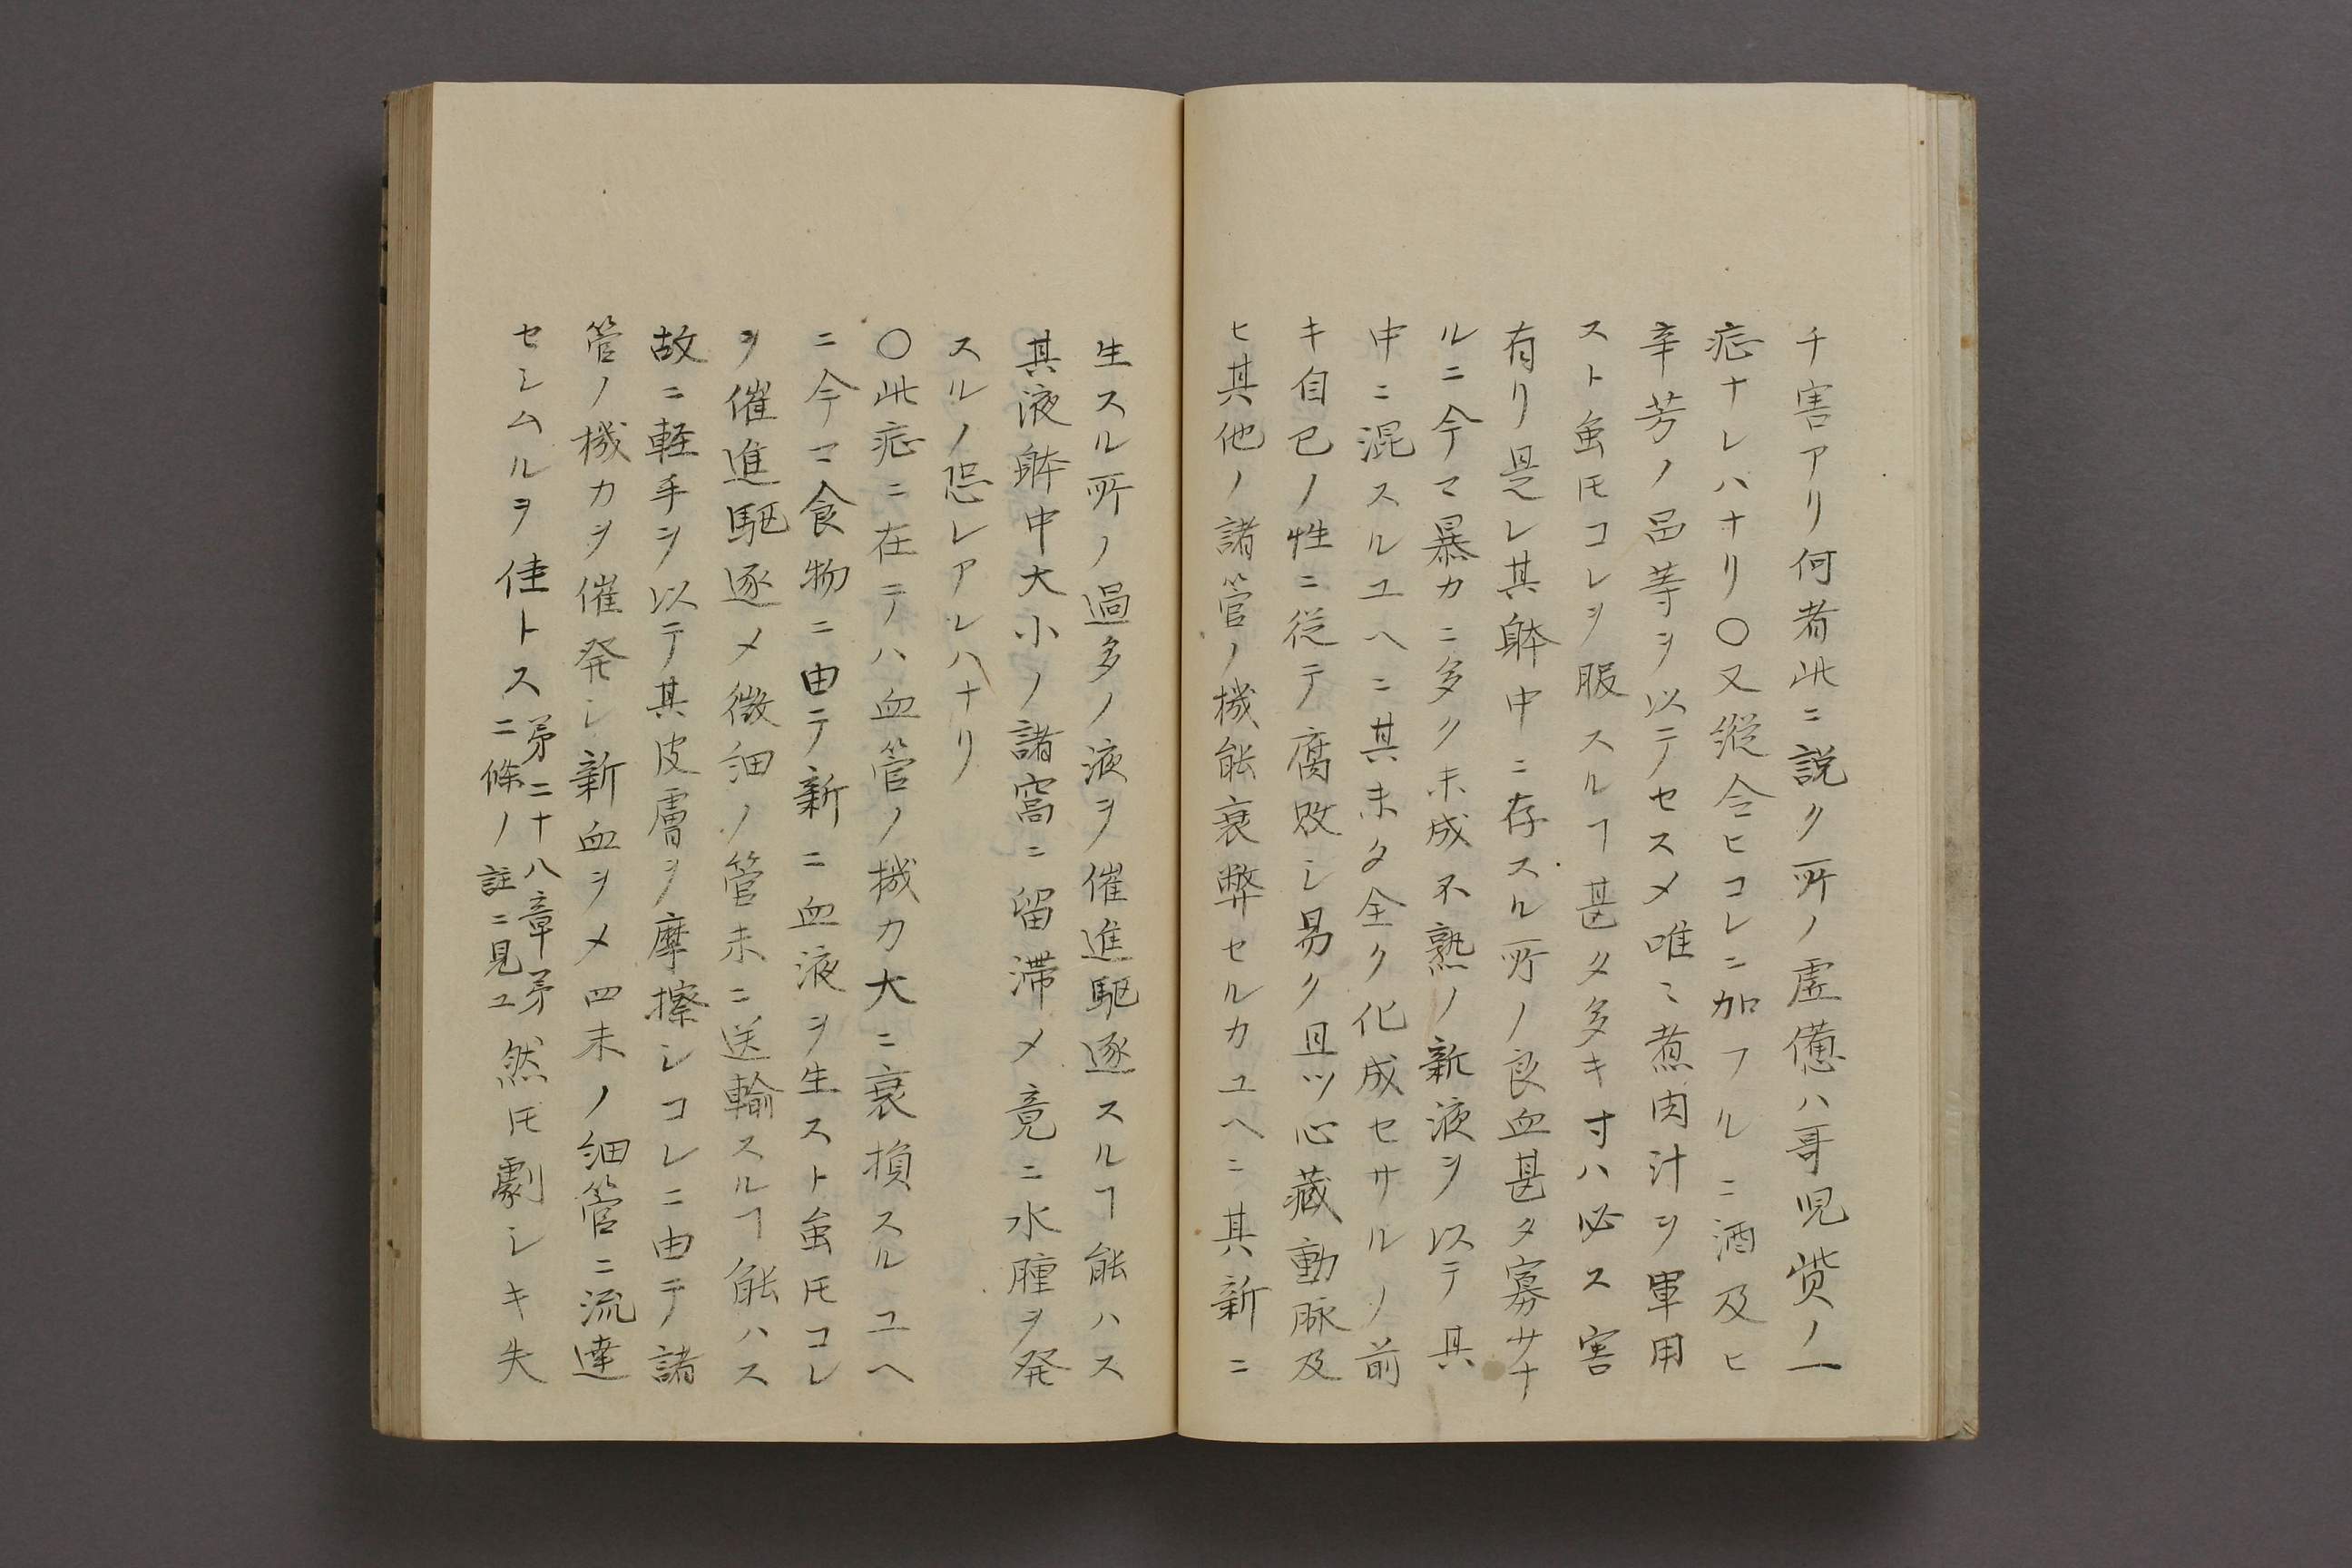 チ害アリ何者此ニ説ク所ノ虚憊ハ哥児赀ノ一
症ナレハナリ〇又縦令ヒコレニ加フルニ酒及ヒ
辛芳ノ品等ヲ以テセスメ唯〻煮肉汁ヲ単用
スト虽𪜈コレヲ服スルヿ甚タ多キ寸ハ必ス害
有リ是レ其躰中ニ存スル所ノ良血甚タ寡サナ
ルニ今マ暴カニ多ク未成不熟ノ新液ヲ以テ其
中ニ混スルユヘニ其未タ全ク化成セサルノ前
キ自己ノ性ニ従テ腐敗シ易ク且ツ心蔵動脈及
ヒ其他ノ諸管ノ機能衰弊セルカユヘニ其新ニ
生スル所ノ過多ノ液ヲ催進駆逐スルヿ能ハス
其液躰中大小ノ諸窩ニ留滞メ竟ニ水腫ヲ発
スルノ恐レアレハナリ
〇此症ニ在テハ血管ノ機力大ニ衰損スルユヘ
ニ今マ食物ニ由テ新ニ血液ヲ生スト虽𪜈コレ
ヲ催進駆逐メ微細ノ管末ニ送輸スルヿ能ハス
故ニ軽手ヲ以テ其皮膚ヲ摩擦シコレニ由テ諸
管ノ機力ヲ催発シ新血ヲメ四末ノ細管ニ流達
セシムルヲ佳トス第二十八章第二條ノ註ニ見ユ然𪜈劇シキ失